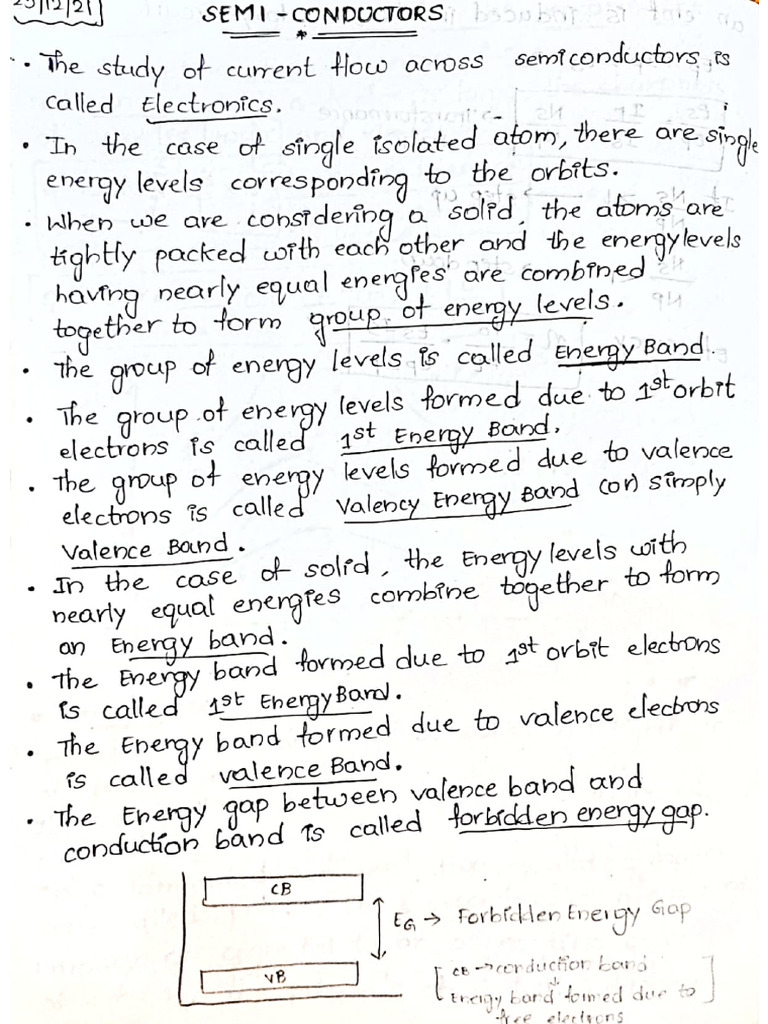 SEMI-CONDUCTORS
• The study of current flow across semiconductors, is
called Electronics.
• In the case of single isolated atom, there are single
energy levels corresponding to the orbits.
• When we are considering a solid, the atoms are
tightly packed with each other and the energy levels
having nearly equal energies are combined
together to form group of energy levels.
• The group of energy levels is called Energy Band.
• The group of energy levels formed due to 1st orbit
electrons is called 1st Energy Band.
• The group of energy levels formed due to valence
electrons is called Valency Energy Band (or) simply
Valence Band.
• In the case of solid, the Energy levels with
nearly equal energies combine together to form
an Energy band.
• The Energy band formed due to 1st orbit electrons
is called 1st Energy Band.
• The Energy band formed due to valence electrons
is called valence Band.
• The Energy gap between valence band and
conduction band is called forbidden energy gap.
CB
EG → Forbidden Energy Gap
VB
CB → conduction band
Energy band formed due to
free electrons